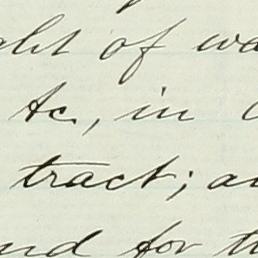 ght of wa
&c, in
tract; an
nd for t